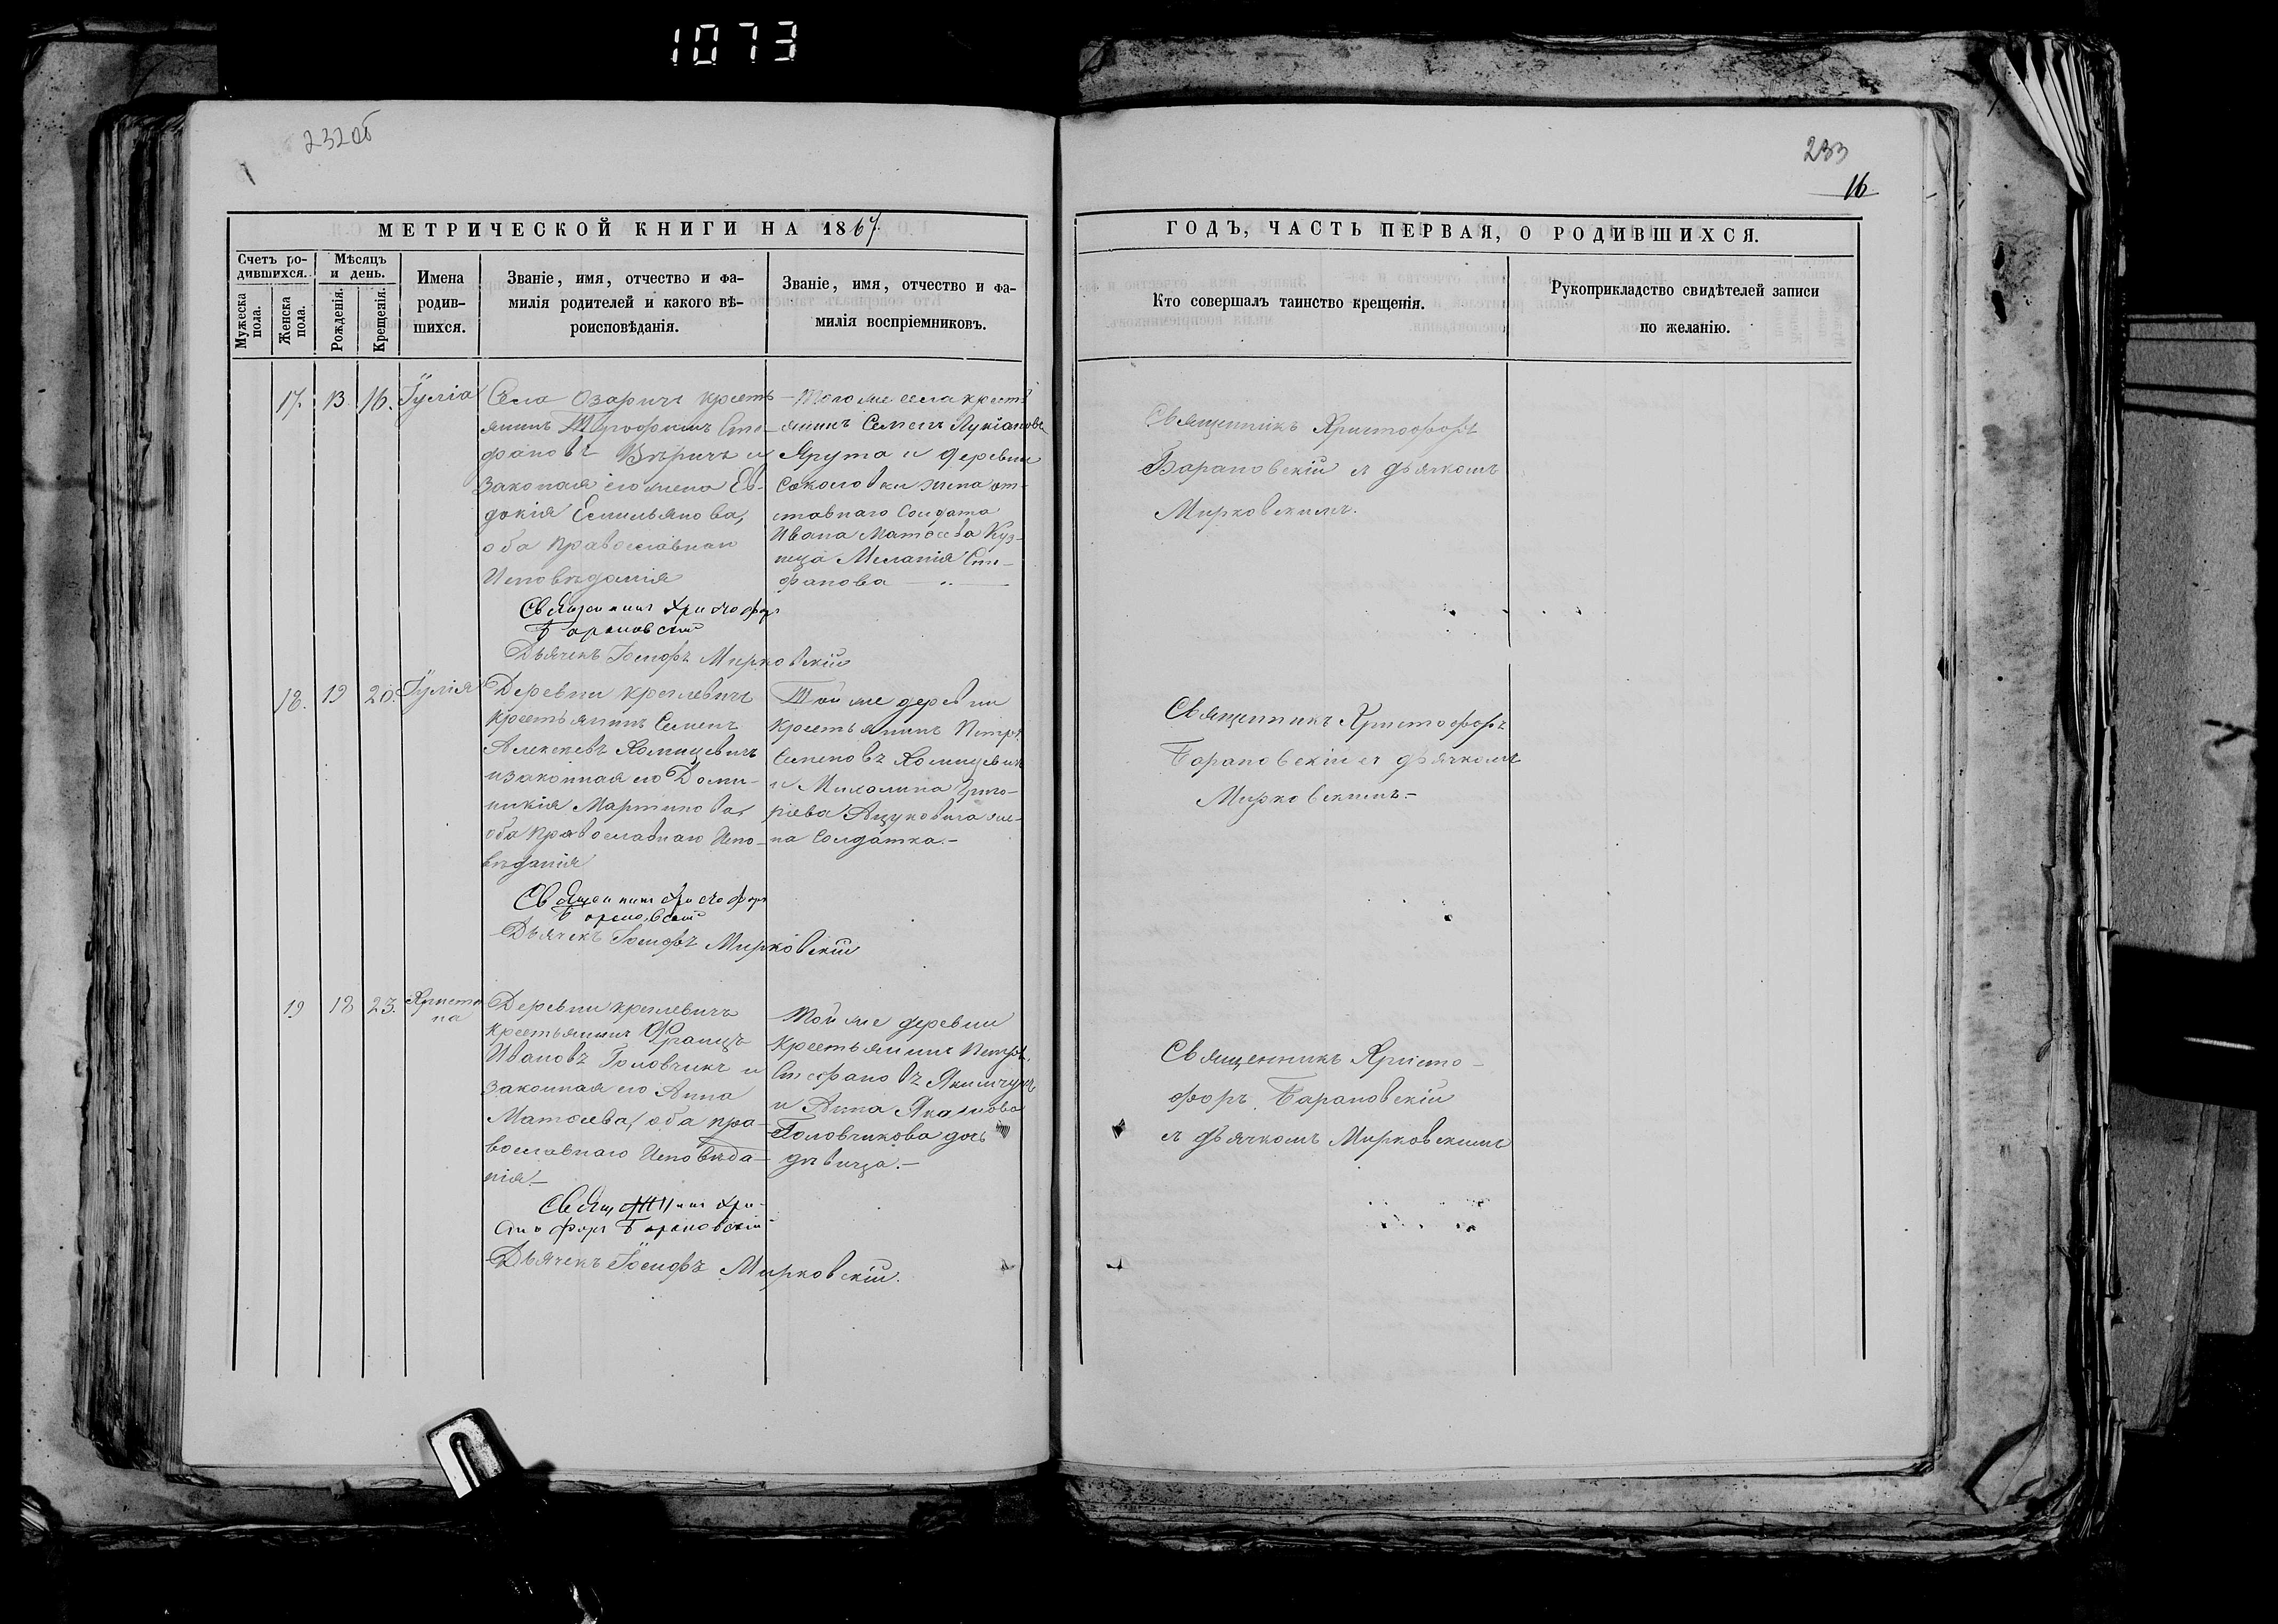 1073
232об
233
16
МЕТРИЧЕСКОЙ КНИГИ НА 1867
ГОДЪ, ЧАСТЬ ПЕРВАЯ, О РОДИВШИХСЯ.
Счетъ ро-
дившихся.
Мужеска
пола.
Женска
пола.
Мѣсяцъ
и день.
Рожденія.
Крещенія.
Имена
родив-
шихся.
Званіе, имя, отчество и фа-
милія родителей и какого вѣ-
роисповѣданія.
Званіе, имя, отчество и фа-
милія воспріемниковъ.
Кто совершалъ таинство крещенія.
Рукоприкладство свидѣтелей записи
по желанію.
17. 13 16. Іулія
Села Озаричъ кресть-
янинъ Трофимъ Сте-
фановъ и
законная его жена Ев-
докія Емельянова,
оба православнаго
Исповѣданія
Священникъ Христофоръ
Барановскій
Дьячекъ Іосифъ Мирковскій
Того же села кресть-
янинъ Семенъ Лукіановъ
Ярута и деревни
Соколовки жена от-
ставнаго Солдата
Ивана Матѳеева Куз-
неца Меланія Сте-
фанова
Священникъ Христофоръ
Барановскій съ дьячкомъ
Мирковскимъ.
18. 19 20. Іулія
Деревни
Крестьянинъ Семенъ
Алексѣевъ Хомицевичъ
и законная его Доми-
никія Мартинова,
оба Православнаго Испо-
вѣданія
Священникъ Христофоръ
Барановскій
Дьячекъ Іосифъ Мирковскій
Той же деревни
Крестьянинъ Петръ
Семеновъ Хомицевичъ
и Михалина Григо-
ріева же-
на Солдатка.-
Священникъ Христофоръ
Барановскій съ дьячкомъ
Мирковскимъ.-
19 18 23. Христи
на
Деревни
Крестьянинъ Францъ
Ивановъ Головчикъ и
законная его Анна
Матѳеева, оба пра-
вославнаго Исповѣда-
нія.-
Священникъ Хри-
стофоръ Барановскій
Дьячекъ Іосифъ Мирковскій.
Той же деревни
Крестьянинъ Петръ
Стефановъ Якимчукъ
и Анна
Головчикова дочь
дѣвица.-
Священникъ Христо-
форъ Барановскій
съ дьячкомъ Мирковскимъ